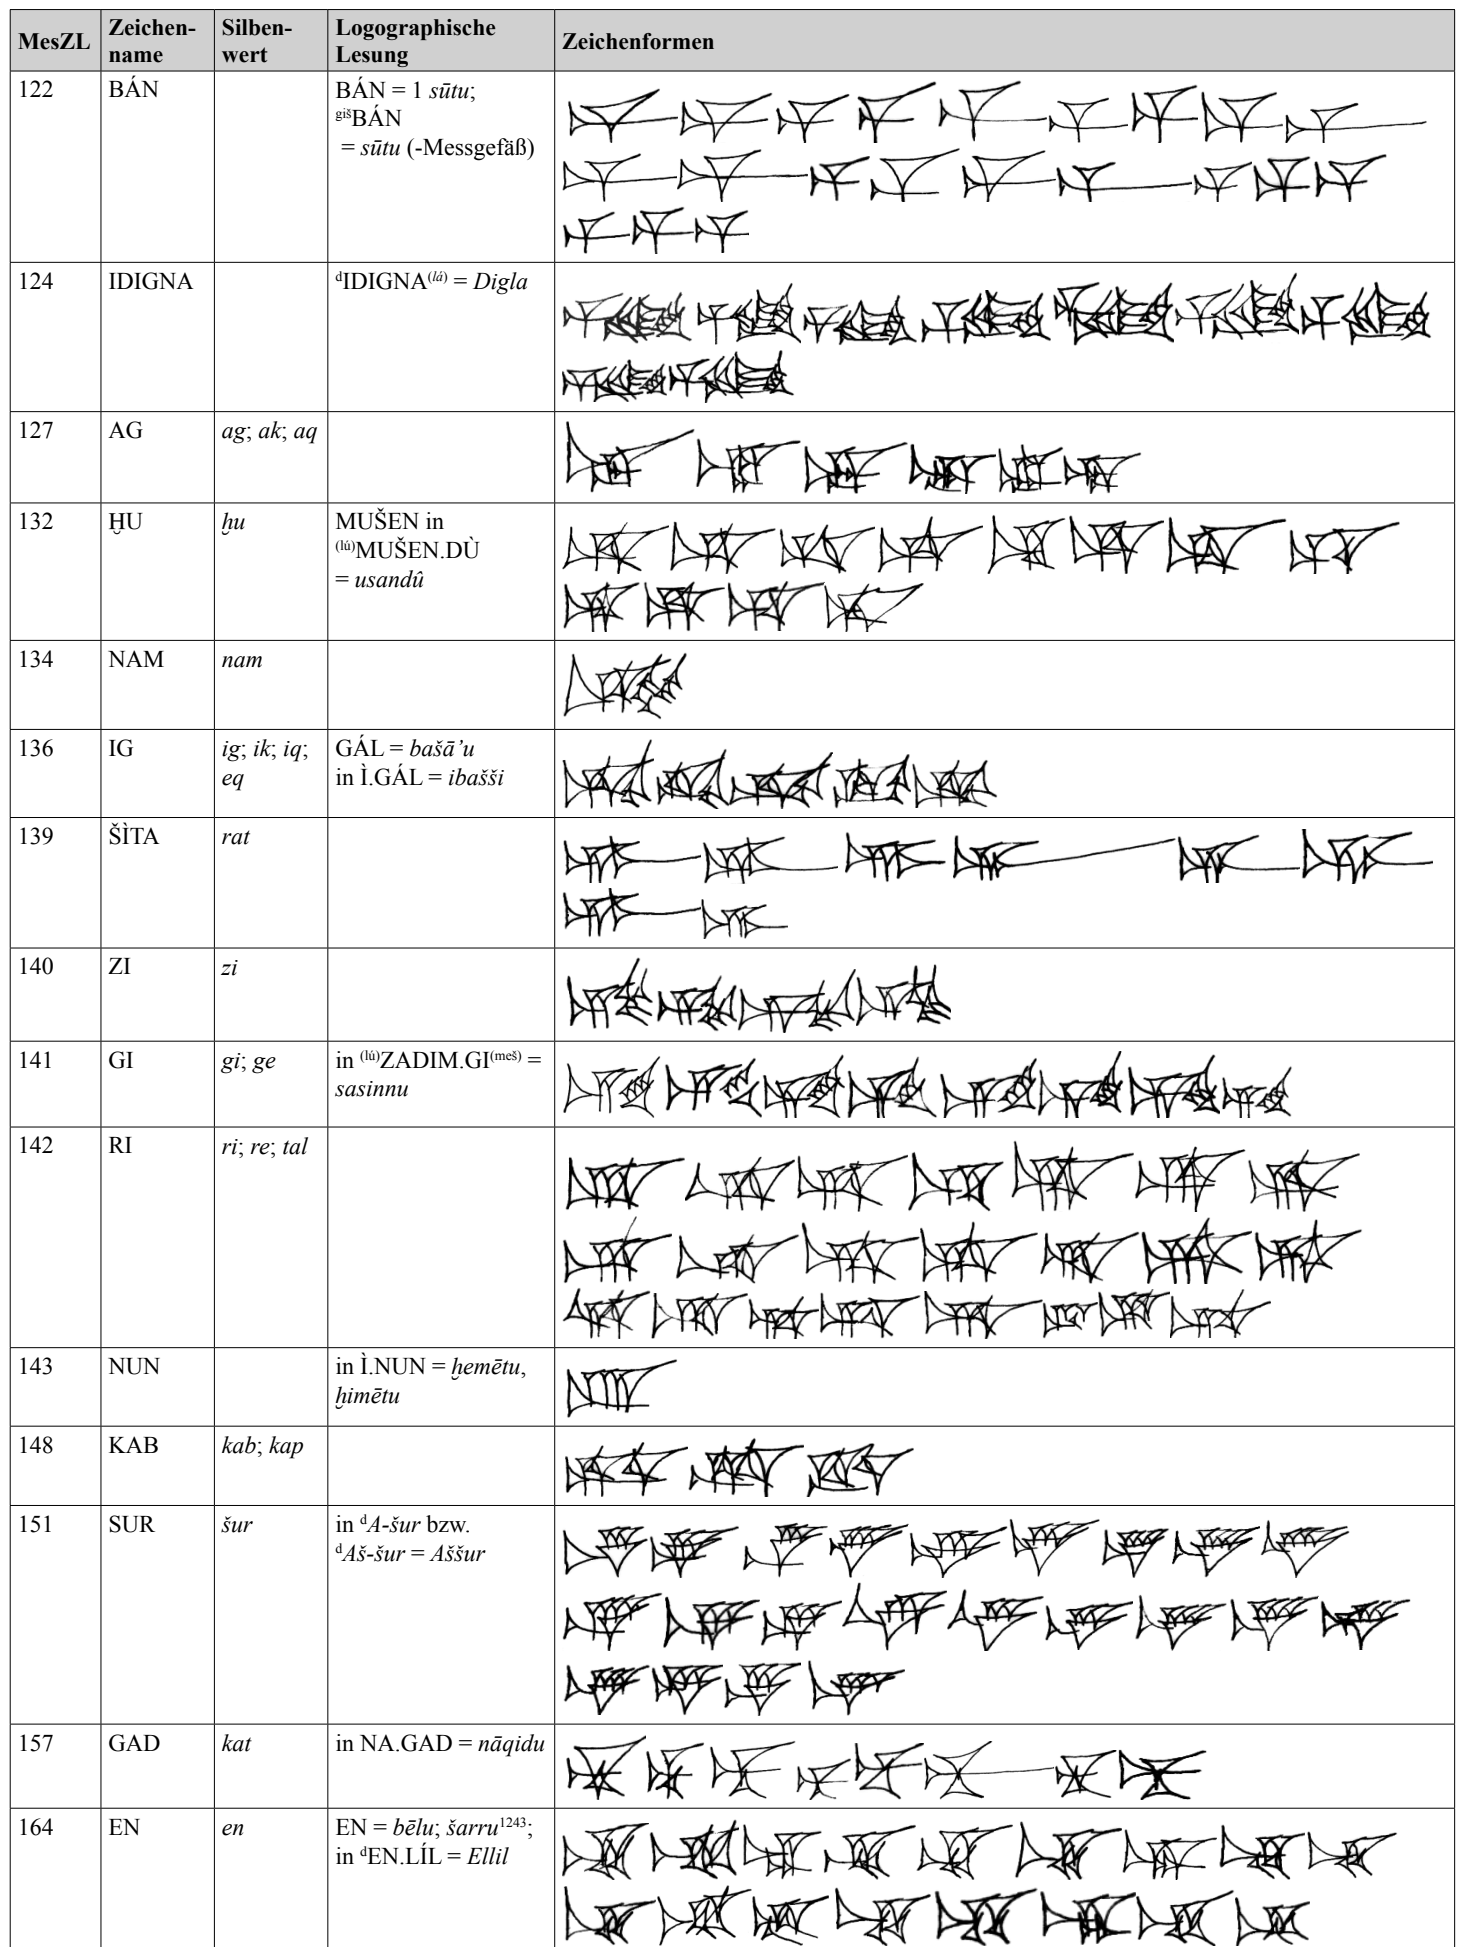 MesZL Zeichen-name Silben-wert Logographische Lesung Zeichenformen
122 BÁN BÁN = 1 sūtu;
gišBÁN
= sūtu (-Messgefäß)
124 IDIGNA dIDIGNA(lá) = Digla
127 AG ag; ak; aq
132 ḪU ḫu MUŠEN in
(lú)MUŠEN.DÙ
= usandû
134 NAM nam
136 IG ig; ik; iq; GÁL = bašā’u
eq in Ì.GÁL = ibašši
139 ŠÌTA rat
140 ZI zi
141 GI gi; ge in (lú)ZADIM.GI(meš) =
sasinnu
142 RI ri; re; tal
143 NUN in Ì.NUN = ḫemētu,
ḫimētu
148 KAB kab; kap
151 SUR šur in dA-šur bzw.
dAš-šur = Aššur
157 GAD kat in NA.GAD = nāqidu
164 EN en EN = bēlu; šarru1243;
in dEN.LÍL = Ellil